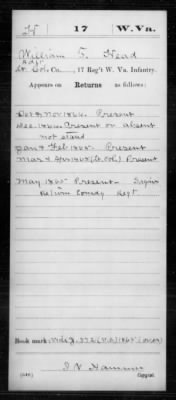 H | 17 | W. Va.
William T. Head
Adj't
Lt. Col. Co. , 17 Reg't W. Va. Infantry.
Appears on Returns as follows:
Oct & Nov 1864. Present
Dec. 1864. Present or absent
not stated
Jan & Feb 1865. Present
Mar & Apr 1865 (Lt. Col.) Present
May 1865 Present. Signs
Return Comdg Regt
Book mark:
(546) Copyist.